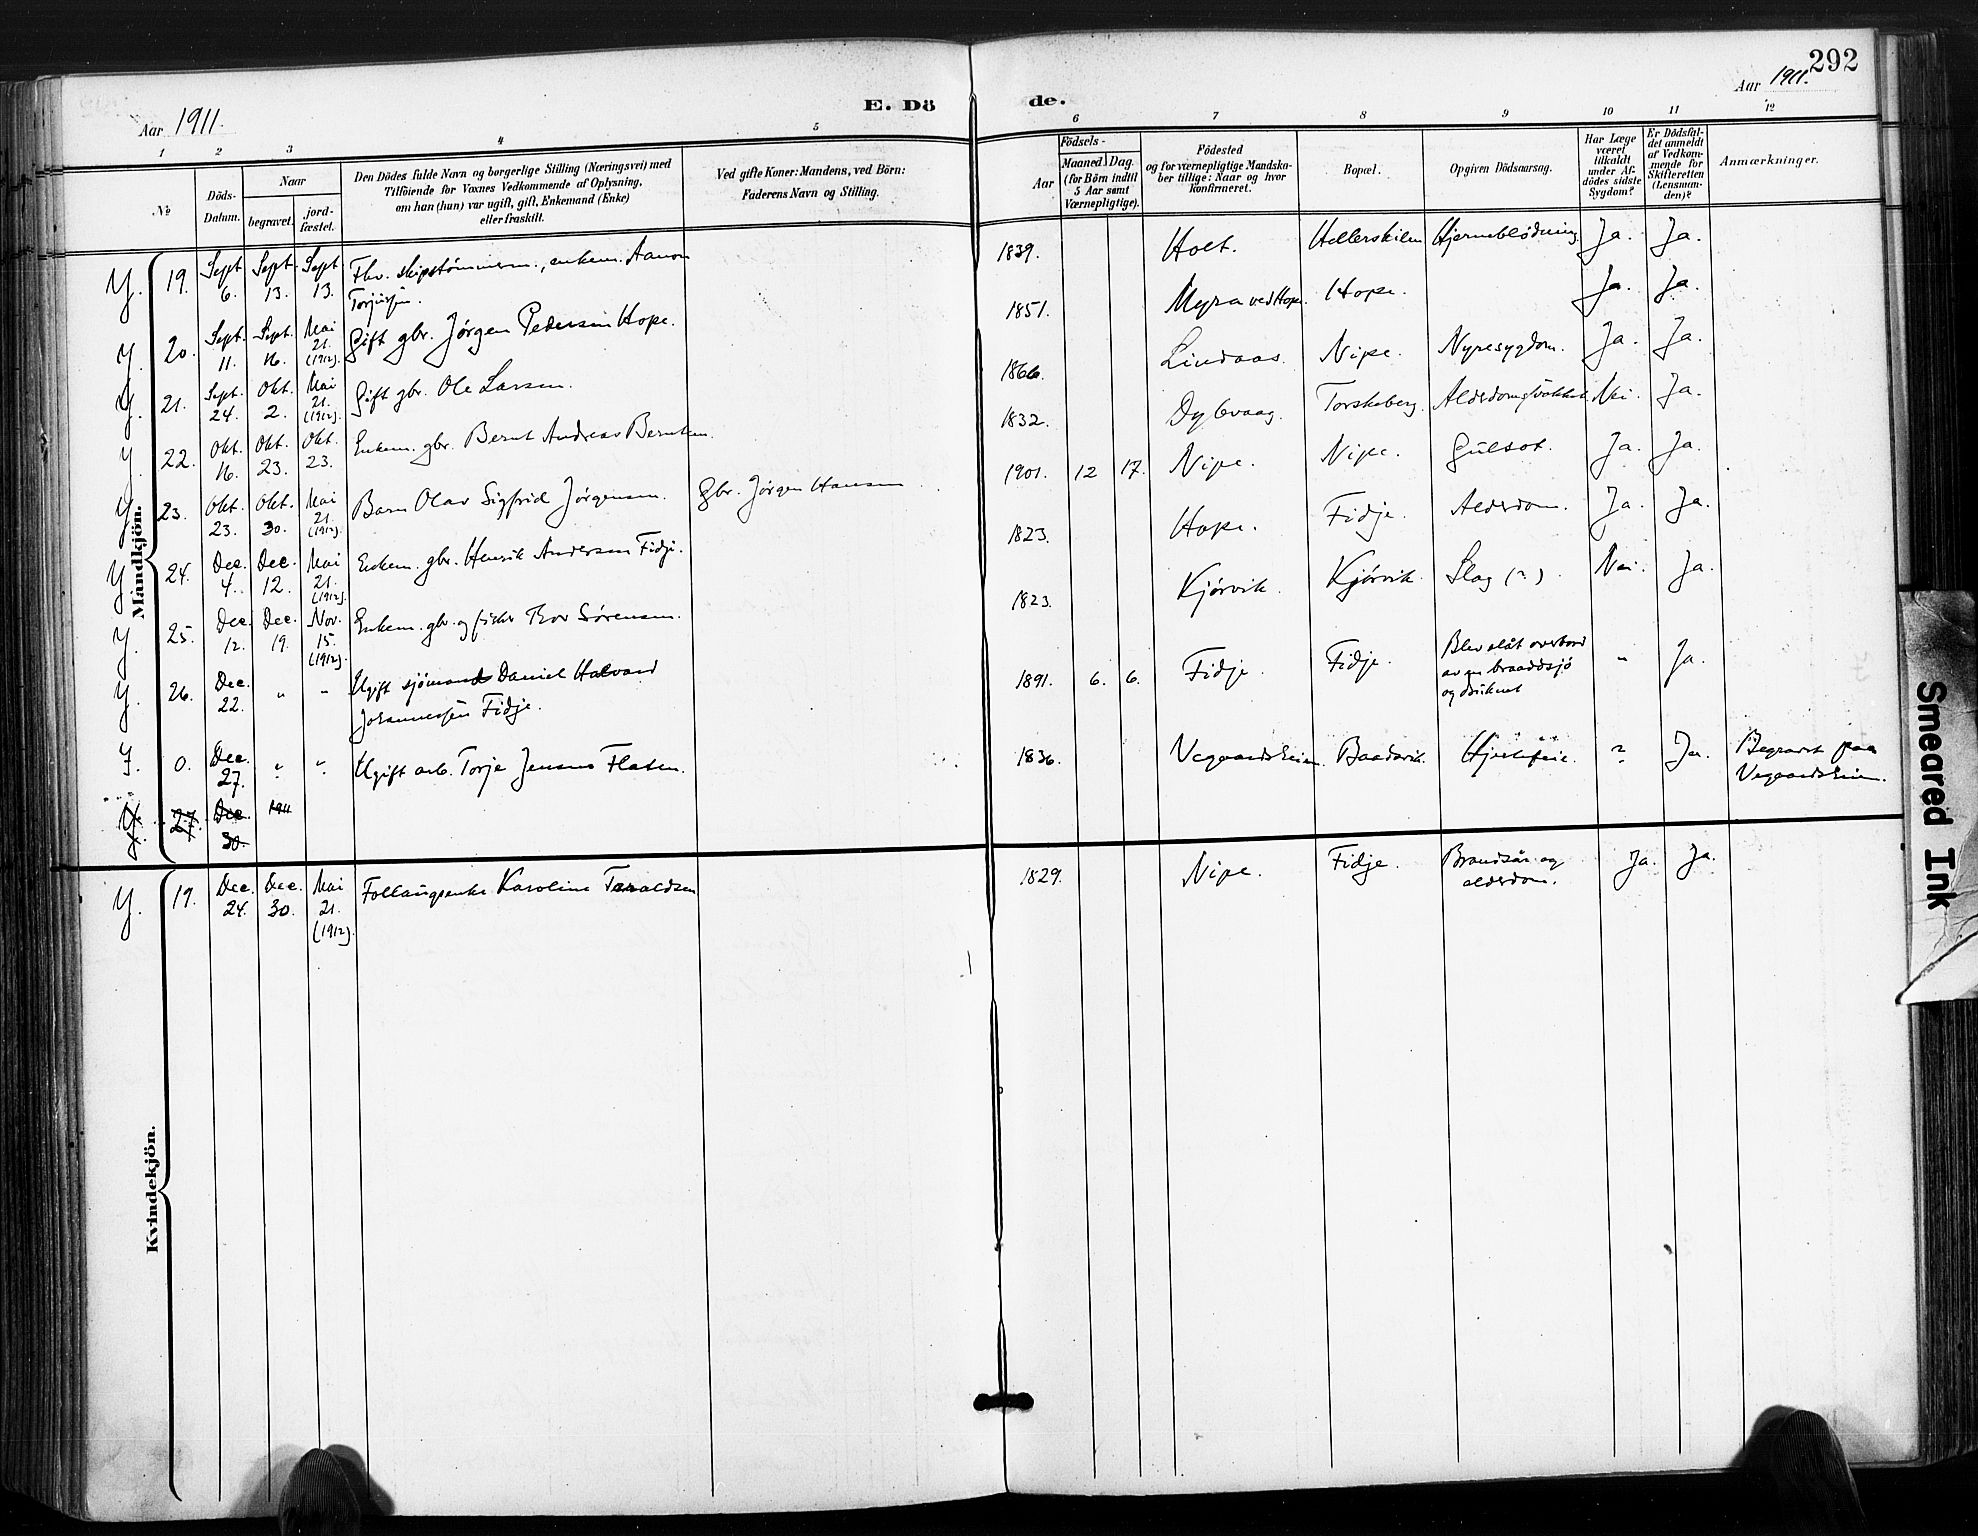 292
Aar 1911.
E. Dö
de.
Aar 1911.
1 2 3 4 5
6 7 8 9 10 11 12
№
Döds-
Datum.
Naar
begravet.
jord-
fæstet.
Den Dödes fulde Navn og borgerlige Stilling (Næringsvei) med
Tilföiende for Voxnes Vedkommende af Oplysning,
om han (hun) var ugift, gift, Enkemand (Enke)
eller fraskilt.
Ved gifte Koner: Mandens, ved Börn:
Faderens Navn og Stilling.
Födsels-
Aar
Maaned Dag.
(for Börn indtil
5 Aar samt
Værnepligtige).
Födested
og for værnepligtige Mandska-
ber tillige: Naar og hvor
konfirmeret.
Bopæl.
Opgiven Dödsaarsag.
Har Læge
været
tilkaldt
under Af-
dödes sidste
Sygdom?
Er Dödsfal-
det anmeldt
af Vedkom-
mende for
Skifteretten
(Lensman-
den)?
Anmærkninger.
Mandkjön.
Y. 19. Sept 6. Sept. 13. Sept 13. Fhv. skipstømmerm., enkem. Aanon
Torjusen.
1839. Holt. Hellerskilen Hjerneblødning Ja. Ja.
Y. 20. Sept. 11. Sept. 16. Mai 21. (1912). Gift gbr. Jørgen Pedersen Hope.
1851. Myra ved Hope. Hope. Ja. Ja.
Y. 21. Sept. 24. Okt. 2. Mai 21. (1912). Gift gbr. Ole Larsen.
1866. Lindaas. Nipe. Nyresygdom. Ja. Ja.
Y. 22. Okt. 16. Okt. 23. Okt. 23. Enkem. gbr. Bernt Andreas Berntsen.
1832. Dybvaag. Torskeberg. Nei. Ja.
Y. 23. Okt. 23. Okt. 30. Mai 21. (1912). Barn Olav Sigfrid Jørgensen. Gbr. Jørgen Hansen
1901. 12 17. Nipe. Nipe. Gulsot. Ja. Ja.
Y. 24. Dec. 4. Dec. 12. Mai 21. (1912). Enkem. gbr. Henrik Andersen Fidje.
1823. Hope. Fidje. Alderdom. Ja. Ja.
Y. 25. Dec. 12. Dec. 19. Nov. 15. (1912). Enkem. gbr. og fisker Tor Sørensen.
1823. Kjørvik. Kjørvik. Slag (?). Nei. Ja.
Y. 26. Dec. 22. " " Ugift sjömand Daniel Halvard
Johannessen Fidje.
1891. 6. 6. Fidje. Fidje. Blev slåt overbord
av en braaddsjø
og druknet
" Ja.
F. 0. Dec. 27. " " Ugift arb. Torje Jensen Flaten.
1836. Vegaardsheien. Baadsvik. Hjertefeil. ? Ja. Begravet paa
Vegaardsheien.
Y. 27. Dec. 30. 1911
Kvindekjön.
Y. 19. Dec. 24. Dec. 30. Mai 21. (1912). Føllaugsenke Karoline Taraldsen
1829. Nipe. Fidje. Brandsår og
alderdom. Ja. Ja.
Smeared Ink